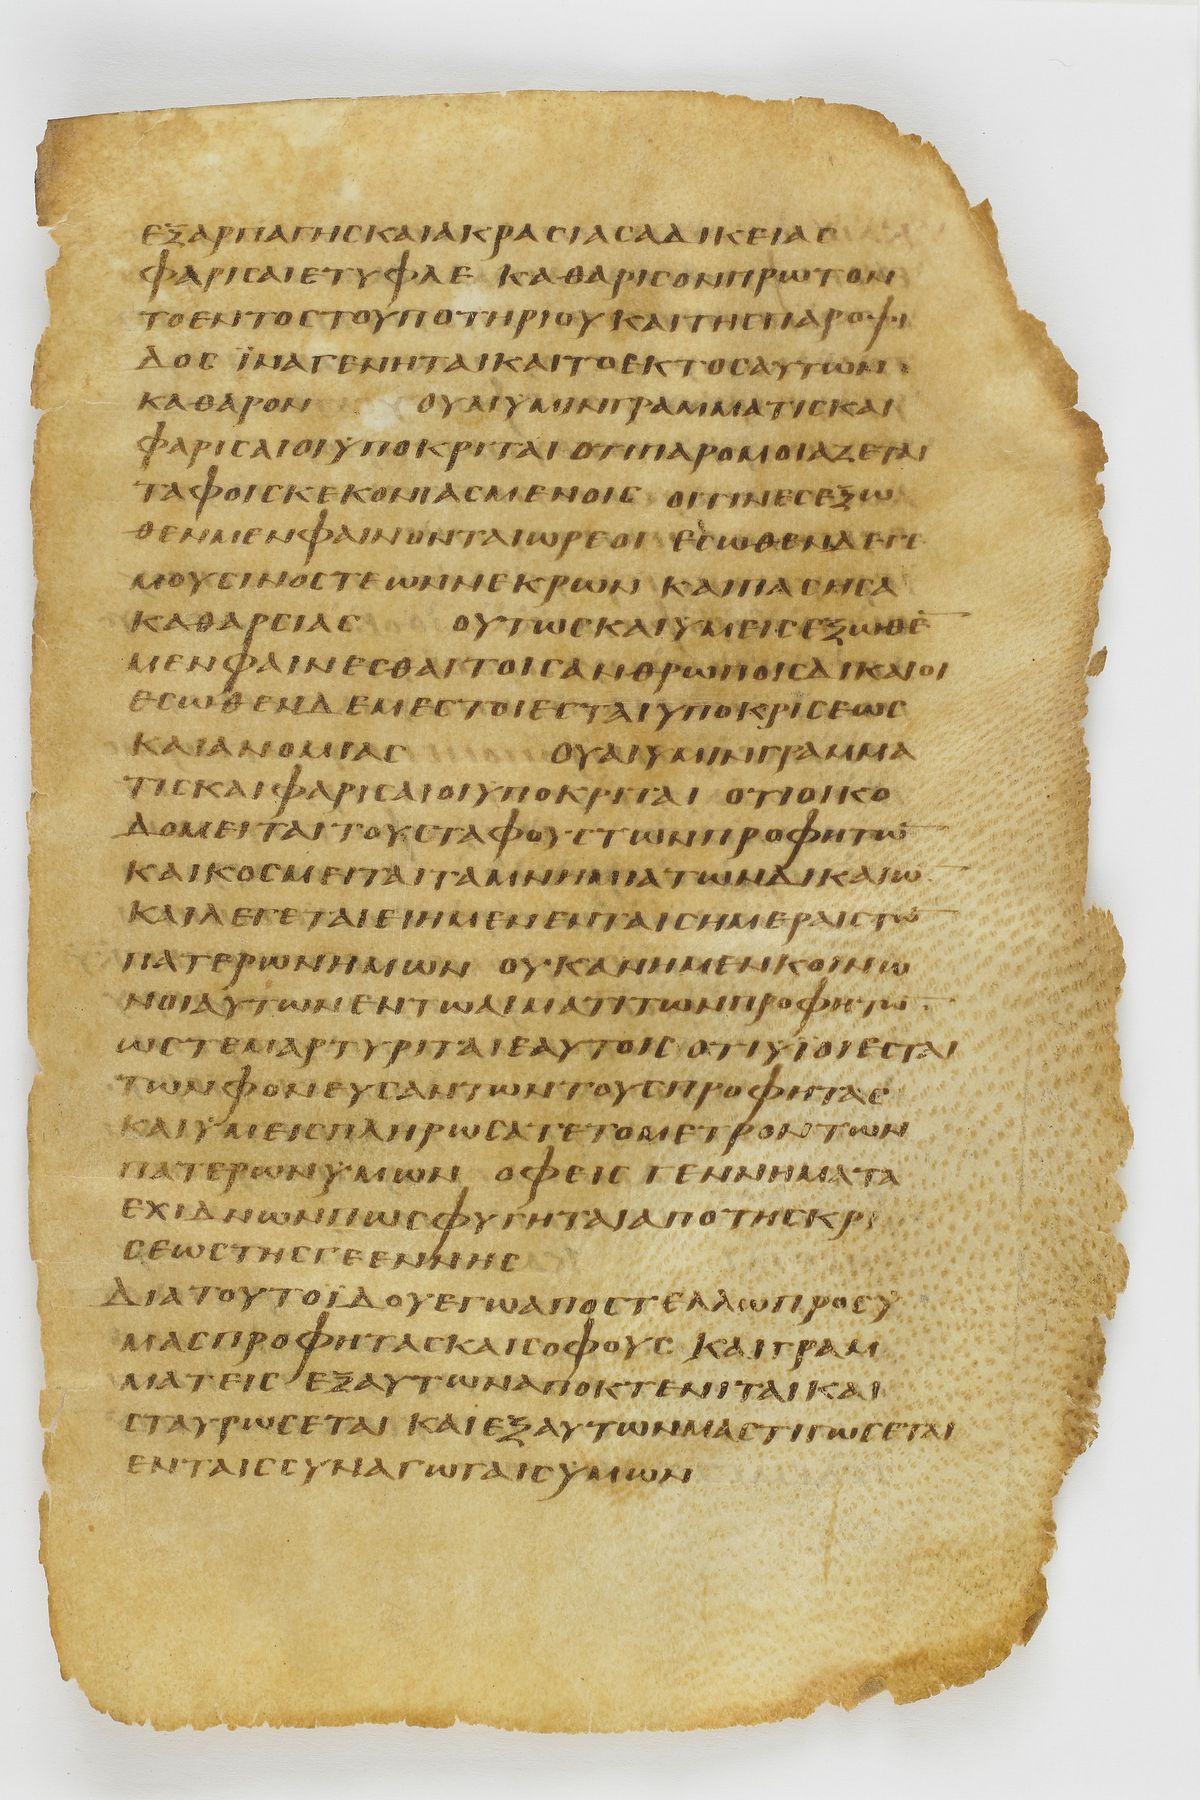 ΕΞΑΡΠΑΓΗСΚΑΙΑΚΡΑСΙΑСΑΔΙΚΕΙΑС
ΦΑΡΙСΑΙΕΤΥΦΛΕ ΚΑΘΑΡΙСΟΝΠΡΩΤΟΝ
ΤΟΕΝΤΟСΤΟΥΠΟΤΗΡΙΟΥΚΑΙΤΗСΠΑΡΟΨΙ
ΔΟС ΪΝΑΓΕΝΗΤΑΙΚΑΙΤΟΕΚΤΟСΑΥΤΩΝ
ΚΑΘΑΡΟΝ ΟΥΑΙΥΜΙΝΓΡΑΜΜΑΤΙСΚΑΙ
ΦΑΡΙСΑΙΟΙΥΠΟΚΡΙΤΑΙ ΟΤΙΠΑΡΟΜΟΙΑΖΕΤΑΙ
ΤΑΦΟΙСΚΕΚΟΝΙΑСΜΕΝΟΙС ΟΙΤΙΝΕСΕΞΩ
ΘΕΝΜΕΝΦΑΙΝΟΝΤΑΙΩΡΕΟΙ ΕСΩΘΕΝΔΕΓΕ
ΜΟΥСΙΝΟСΤΕΩΝΝΕΚΡΩΝ ΚΑΙΠΑСΗСΑ
ΚΑΘΑΡСΙΑС ΟΥΤΩСΚΑΙΥΜΕΙСΕΞΩΘΕ̅
ΜΕΝΦΑΙΝΕСΘΑΙΤΟΙСΑΝΘΡΩΠΟΙСΔΙΚΑΙΟΙ
ΕСΩΘΕΝΔΕΜΕСΤΟΙΕСΤΑΙΥΠΟΚΡΙСΕΩС
ΚΑΙΑΝΟΜΙΑС ΟΥΑΙΥΜΙΝΓΡΑΜΜΑ
ΤΙСΚΑΙΦΑΡΙСΑΙΟΙΥΠΟΚΡΙΤΑΙ ΟΤΙΟΙΚΟ
ΔΟΜΕΙΤΑΙΤΟΥСΤΑΦΟΥСΤΩΝΠΡΟΦΗΤΩ̅
ΚΑΙΚΟСΜΕΙΤΑΙΤΑΜΝΗΜΙΑΤΩΝΔΙΚΑΙΩ̅
ΚΑΙΛΕΓΕΤΑΙΕΙΗΜΕΝΕΝΤΑΙСΗΜΕΡΑΙСΤΩ̅
ΠΑΤΕΡΩΝΗΜΩΝ ΟΥΚΑΝΗΜΕΝΚΟΙΝΩ
ΝΟΙΑΥΤΩΝΕΝΤΩΑΙΜΑΤΙΤΩΝΠΡΟΦΗΤΩ̅
ΩСΤΕΜΑΡΤΥΡΙΤΑΙΕΑΥΤΟΙС ΟΤΙΥΙΟΙΕСΤΑΙ
ΤΩΝΦΟΝΕΥСΑΝΤΩΝΤΟΥСΠΡΟΦΗΤΑС
ΚΑΙΥΜΕΙСΠΛΗΡΩСΑΤΕΤΟΜΕΤΡΟΝΤΩΝ
ΠΑΤΕΡΩΝΥΜΩΝ ΟΦΕΙС ΓΕΝΝΗΜΑΤΑ
ΕΧΙΔΝΩΝΠΩСΦΥΓΗΤΑΙΑΠΟΤΗСΚΡΙ
СΕΩСΤΗСΓΕΕΝΝΗС
ΔΙΑΤΟΥΤΟΪΔΟΥΕΓΩΑΠΟСΤΕΛΛΩΠΡΟСΥ
ΜΑСΠΡΟΦΗΤΑСΚΑΙСΟΦΟΥС ΚΑΙΓΡΑΜ
ΜΑΤΕΙС ΕΞΑΥΤΩΝΑΠΟΚΤΕΝΙΤΑΙΚΑΙ
СΤΑΥΡΩСΕΤΑΙ ΚΑΙΕΞΑΥΤΩΝΜΑСΤΙΓΩСΕΤΑΙ
ΕΝΤΑΙССΥΝΑΓΩΓΑΙСΥΜΩΝ